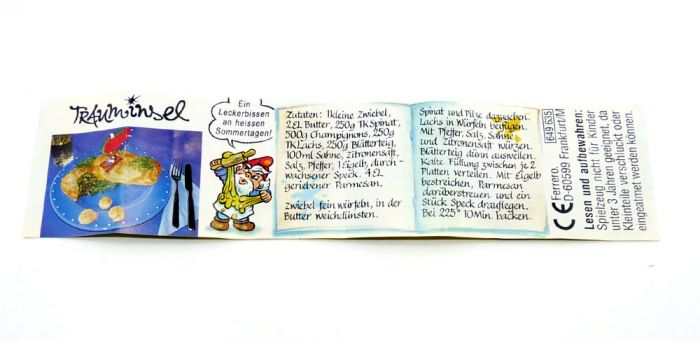 TRAUMINSEL
Ein
Leckerbissen
an heissen
Sommertagen!
Zutaten: 1 kleine Zwiebel,
2 EL Butter, 250g TK Spinat,
500g Champignons, 250g
TK Lachs, 250g Blätterteig,
100ml Sahne, Zitronensaft,
Salz, Pfeffer, 1 Eigelb, durch-
wachsener Speck, 4 EL
geriebener Parmesan.
Zwiebel fein würfeln, in der
Butter weichdünsten.
Spinat und Pilze dazugeben.
Lachs in Würfeln beifügen.
Mit Pfeffer, Salz, Sahne
und Zitronensaft würzen.
Blätterteig dünn auswellen.
Kalte Füllung zwischen je 2
Platten verteilen. Mit Eigelb
bestreichen, Parmesan
darüberstreuen und ein
Stück Speck drauflegen.
Bei 225° 10 Min. backen.
649 635
CE Ferrero,
D-60599 Frankfurt/M
Lesen und aufbewahren:
Spielzeug nicht für Kinder
unter 3 Jahren geeignet, da
Kleinteile verschluckt oder
eingeatmet werden können.